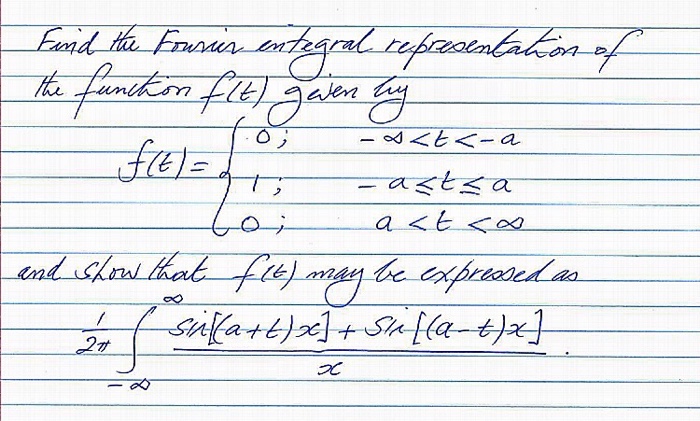 Find the Fourier integral representation of
the function f(t) given by
f(t) = { 0 ; -∞ < t < -a
1 ; -a ≤ t ≤ a
0 ; a < t < ∞
and show that f(t) may be expressed as
1/2π ∫_{-∞}^{∞} sin[(a+t)x] + sin[(a-t)x] / x .